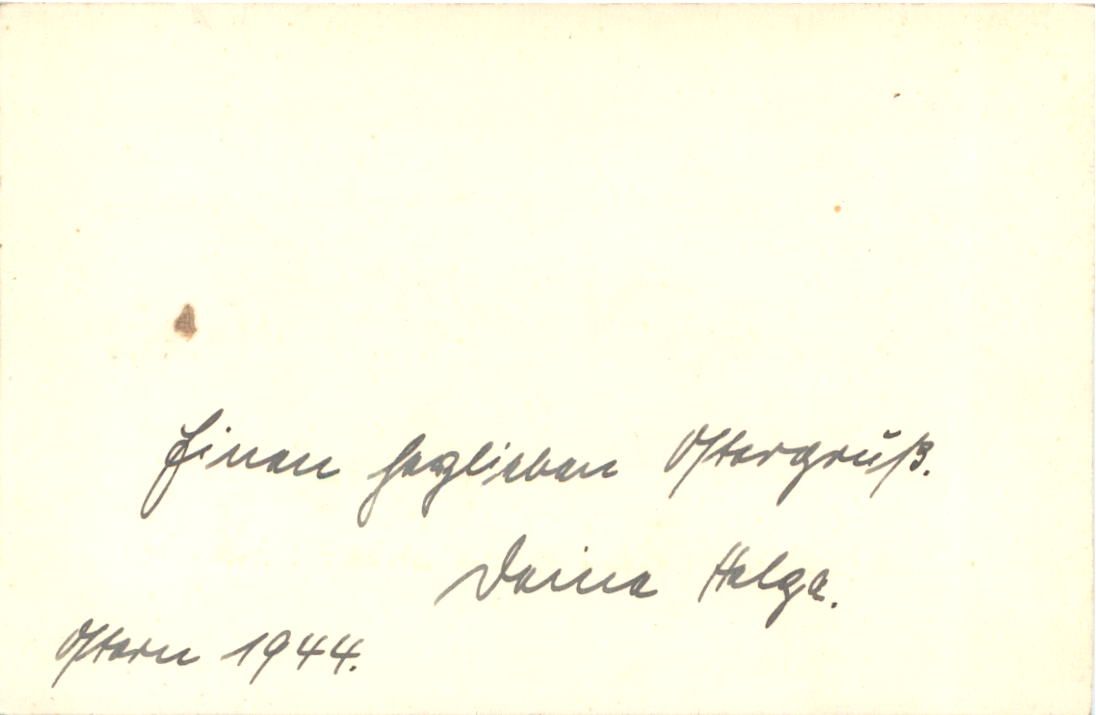 Einen herzlieben Ostergruß.
Deine Helga.
Ostern 1944.